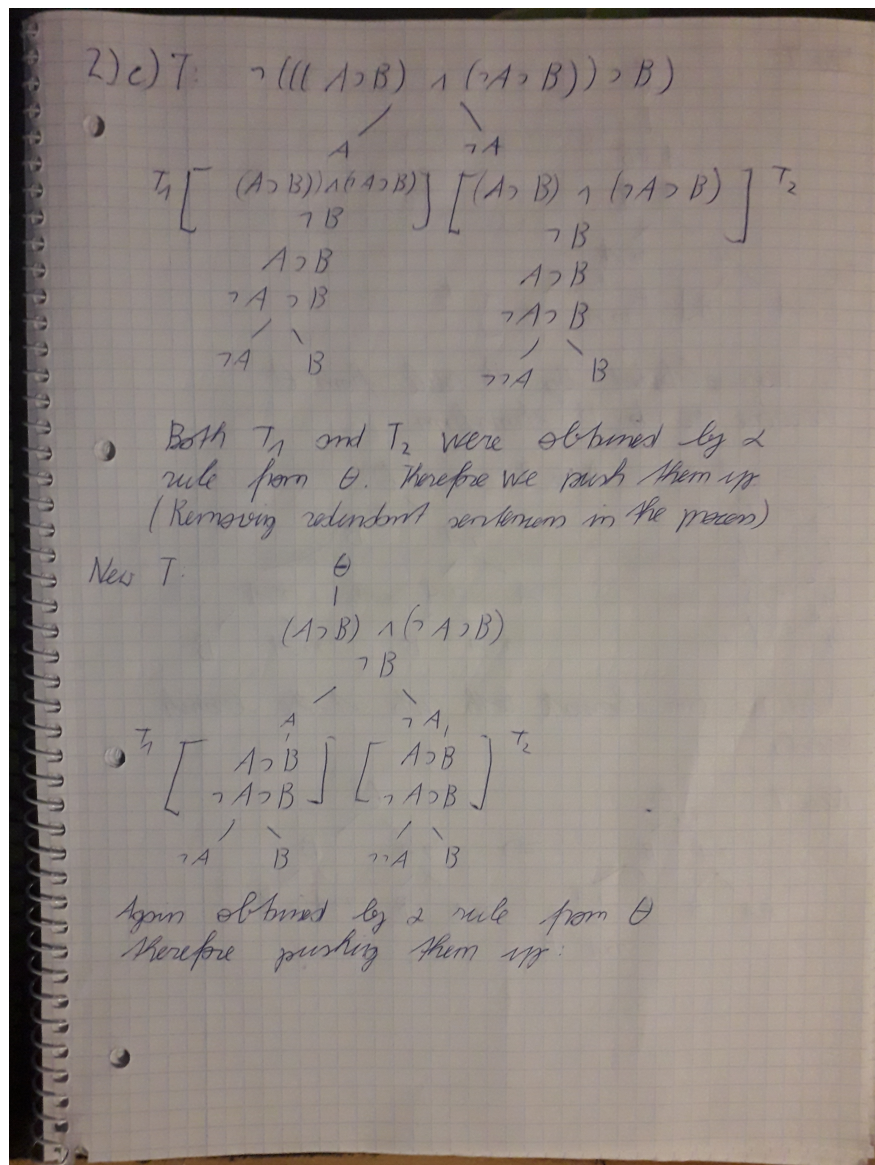 2) c) T: ¬(((A⊃B) ∧ (¬A⊃B))⊃B)
A ¬A
T₁ [ (A⊃B))∧(¬A⊃B) ] [ (A⊃B) ∧ (¬A⊃B) ] T₂
¬B ¬B
A⊃B A⊃B
¬A⊃B ¬A⊃B
¬A B ¬¬A B
Both T₁ and T₂ were obtained by α
rule from θ. Therefore we push them up
(Removing redundant sentences in the process)
New T.
θ
(A⊃B) ∧(¬A⊃B)
¬B
A ¬A
T₁ [ A⊃B ] [ A⊃B ] T₂
¬A⊃B ¬A⊃B
¬A B ¬¬A B
Again obtained by α rule from θ
therefore pushing them up: